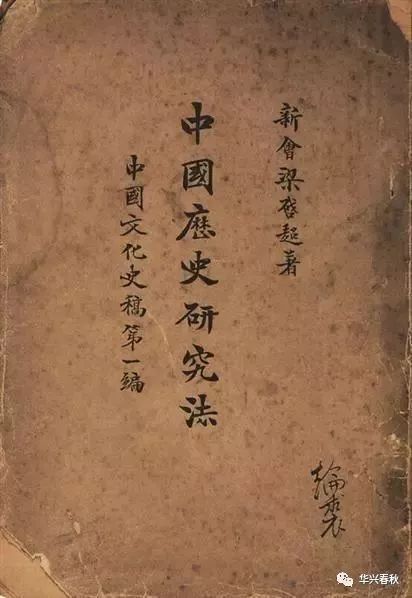 新會梁啓超著
中國歷史研究法
中國文化史稿第一編
华兴春秋